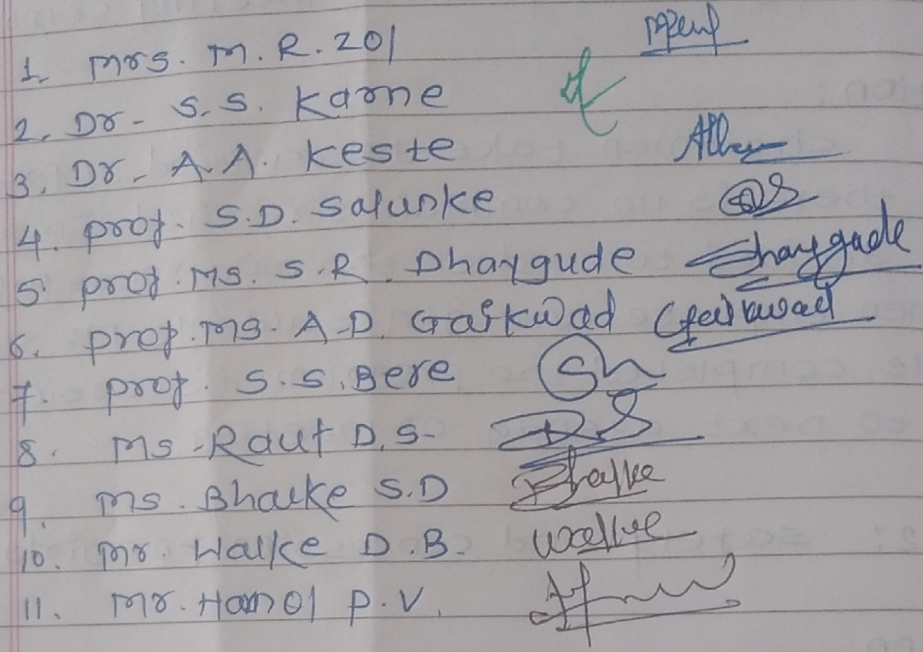 1. Mrs. M. R. Zol
2. Dr. S. S. Karne
3. Dr. A. A. Keste
4. prof. S.D. Salunke
5. prof. Ms. S.R. Dhaygude Dhaygude
6. prof. Ms. A.D. Gaikwad Gaikwad
7. prof. S.S. Bere
8. Ms. Raut D.S.
9. Ms. Bhalke S.D Bhalke
10. Mr. Walke D.B. Walke
11. Mr. Hamol P.V.